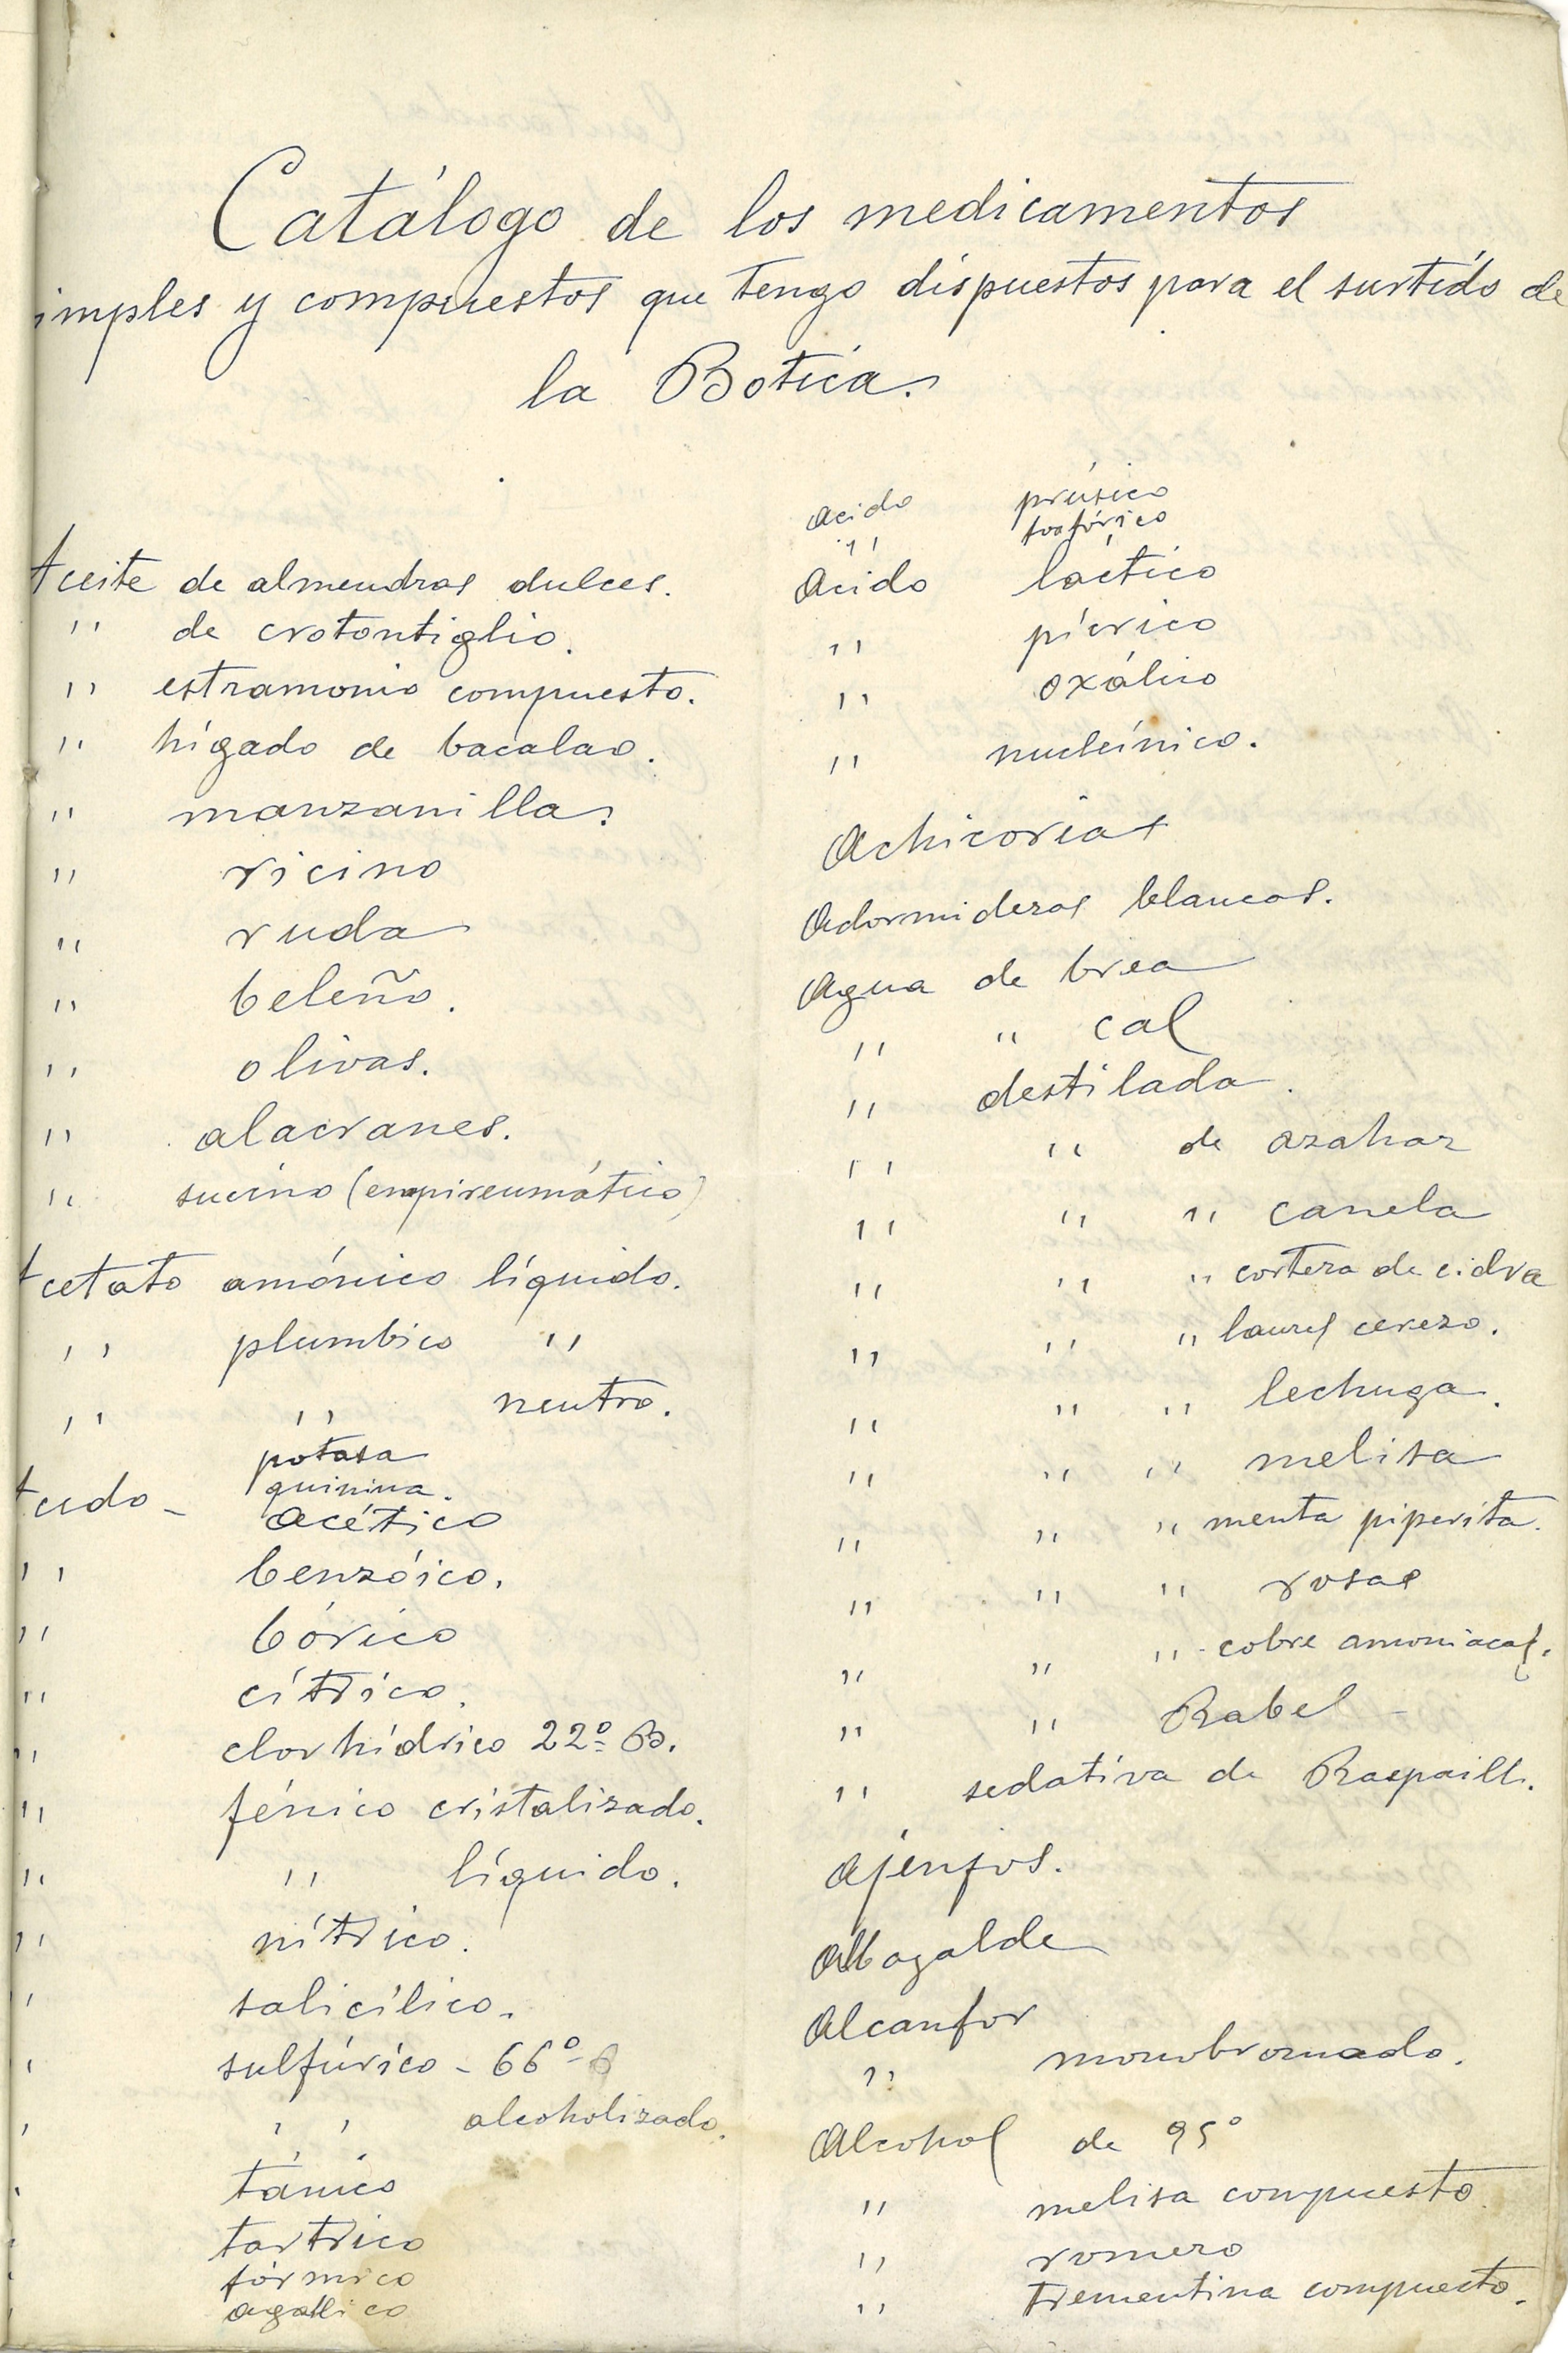 Catálogo de los medicamentos
imples y compuestos que tengo dispuestos para el surtido de
la Botica.
Aceite de almendras dulces.
" de crotontiglio.
" estramonio compuesto.
" hígado de bacalao.
" manzanilla.
" ricino
" ruda
" beleño.
" olivas.
" alacranes.
" sucino (empireumático)
Acetato amónico líquido.
" plumbico "
" " neutro.
potasa
quinina.
Acido - acético
" benzóico.
" bórico
" cítrico.
" clorhídrico 22º B.
" fénico cristalizado.
" " líquido.
" nítrico.
" salicílico.
" sulfúrico - 66º B
" " alcoholizado.
" tánico
" tartrico
" fórmico
" agallico
Acido prúsico
" fosfórico
Acido láctico
" pícrico
" oxálico
" nucleínico.
Achicorias
Adormideras blancas.
Agua de brea
" " cal
" destilada.
" " de azahar
" " " canela
" " " corteza de cidra
" " " laurel cerezo.
" " " lechuga.
" " " melisa
" " " menta piperita.
" " " rosas
" " " cobre amoniacal.
" " Rabel
" sedativa de Raspaill.
Ajenjos.
Albayalde
Alcanfor
" monobromado.
Alcohol de 95º
" melisa compuesto
" romero
" trementina compuesto.